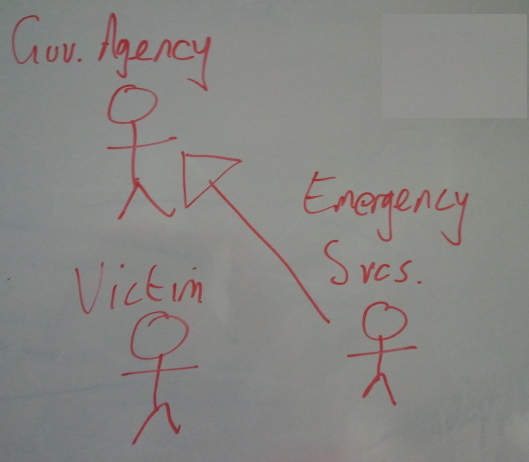 Gov. Agency
Emergency
Srcs.
Victim